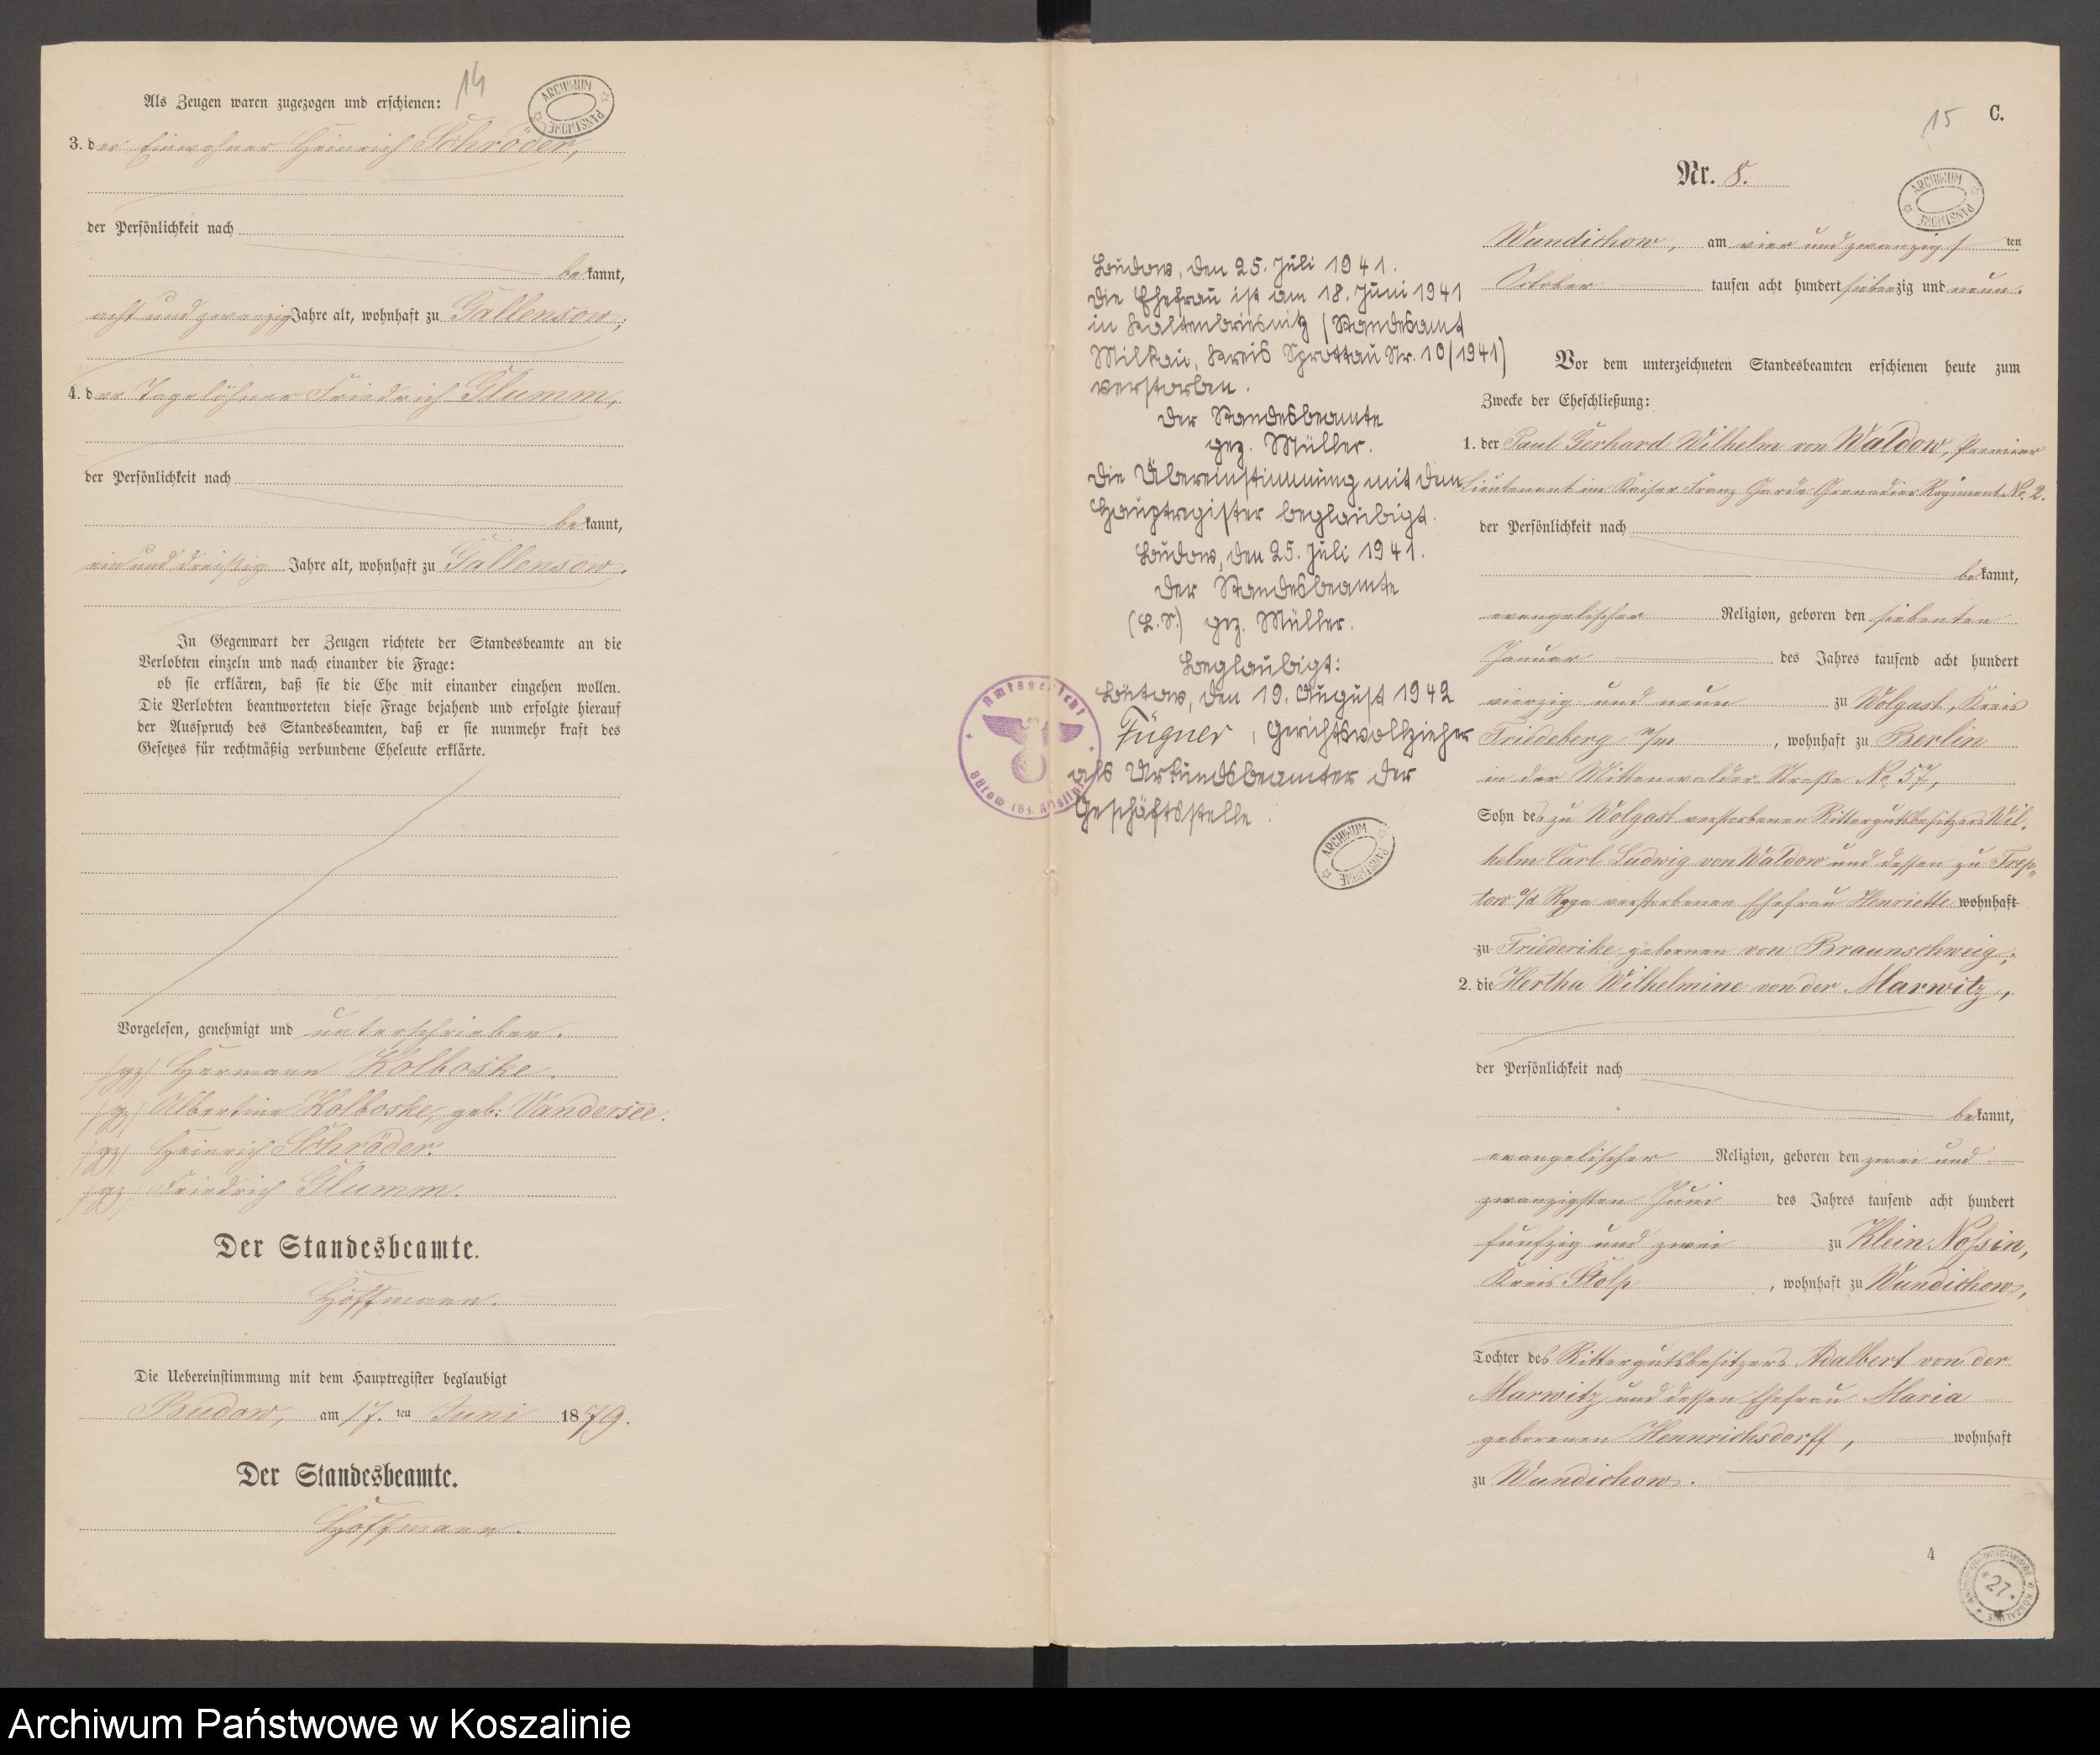 14
Als Zeugen waren zugezogen und erschienen:
ARCHIWUM PAŃSTWOWE
3. der Einwohner Heinrich Schröder,
der Persönlichkeit nach
bekannt,
acht und zwanzig Jahre alt, wohnhaft zu Gallensow,
4. der Tagelöhner Friedrich Glumm,
der Persönlichkeit nach
bekannt,
ein und dreißig Jahre alt, wohnhaft zu Gallensow.
In Gegenwart der Zeugen richtete der Standesbeamte an die
Verlobten einzeln und nach einander die Frage:
ob sie erklären, daß sie die Ehe mit einander eingehen wollen.
Die Verlobten beantworteten diese Frage bejahend und erfolgte hierauf
der Ausspruch des Standesbeamten, daß er sie nunmehr kraft des
Gesetzes für rechtmäßig verbundene Eheleute erklärte.
Vorgelesen, genehmigt und unterschrieben.
(gz) Hermann Kolboske.
(gz) Albertine Kolboske, geb: Vandersee.
(gz) Heinrich Schröder.
(gz) Friedrich Glumm.
Der Standesbeamte.
Hoffmann.
Die Uebereinstimmung mit dem Hauptregister beglaubigt
Budow, am 17. ten Juni 1879.
Der Standesbeamte.
Hoffmann.
15
C.
Nr. 8.
ARCHIWUM PAŃSTWOWE
Wundichow, am vier und zwanzigsten
October tausen acht hundert siebenzig und neun.
Vor dem unterzeichneten Standesbeamten erschienen heute zum
Zwecke der Eheschließung:
1. der Paul Gerhard Wilhelm von Waldow, Premier
Lieutenant im Kaiser Franz Garde Grenadier Regiment No. 2.
der Persönlichkeit nach
bekannt,
evangelischer Religion, geboren den siebenten
Januar des Jahres tausend acht hundert
vierzig und neun zu Wolgast, Kreis
Friedeberg n/m, wohnhaft zu Berlin
in der Mittenwalder Straße No. 57,
Sohn des zu Wolgast verstorbenen Rittergutsbesitzers Wil-
helm Carl Ludwig von Waldow und dessen zu Trep-
tow a/d Rega verstorbenen Ehefrau Henriette wohnhaft
zu Friederike gebornen von Braunschweig,
2. die Hertha Wilhelmine von der Marwitz,
der Persönlichkeit nach
bekannt,
evangelischer Religion, geboren den zwei und
zwanzigsten Juni des Jahres tausend acht hundert
funfzig und zwei zu Klein Nossin,
Kreis Stolp, wohnhaft zu Wundichow,
Tochter des Rittergutsbesitzers Adalbert von der
Marwitz und dessen Ehefrau Maria
geborenen Hennrichsdorff, wohnhaft
zu Wundichow.
4
27
Budow, den 25. Juli 1941.
Die Ehefrau ist am 18. Juni 1941
in Kaltenbriesnitz (Standesamt
Milkau, Kreis Sprottau Nr. 10/1941)
verstorben.
Der Standesbeamte
gez. Müller.
Die Übereinstimmung mit dem
Hauptregister beglaubigt.
Budow, den 25. Juli 1941.
Der Standesbeamte
(L.S.) gez. Müller.
Beglaubigt:
Bütow, den 19. August 1942
Fügner, Gerichtsvollzieher
als Urkundsbeamter der
Geschäftsstelle.
Amtsgericht
Bütow
ARCHIWUM PAŃSTWOWE
Archiwum Państwowe w Koszalinie